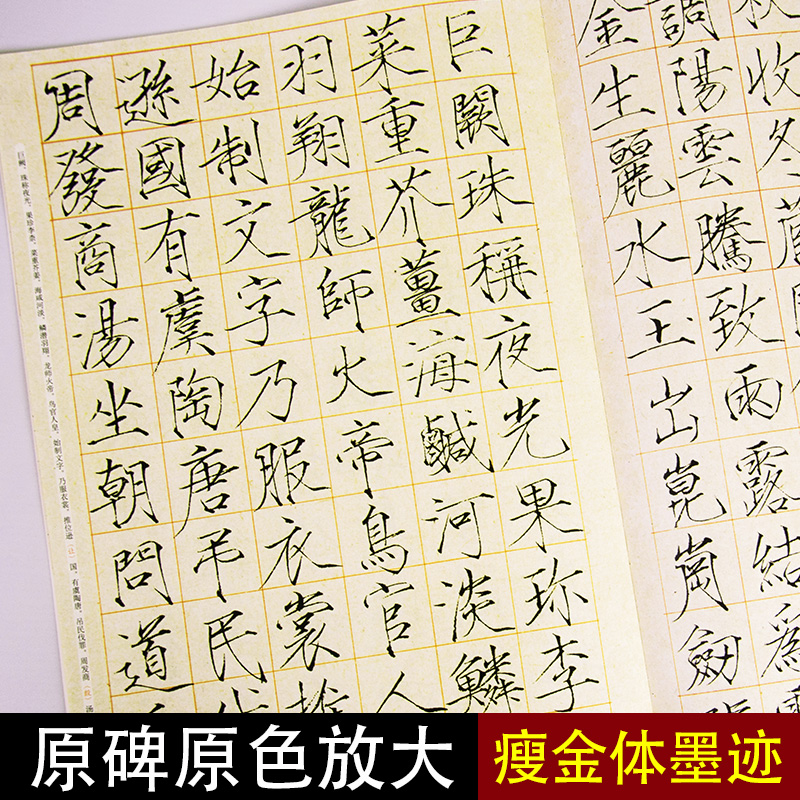 秋收冬
調陽雲騰致雨露結為
金生麗水玉出崑崗劍
巨闕珠稱夜光果珎李
菜重芥薑海鹹河淡鱗
羽翔龍師火帝鳥官人
始制文字乃服衣裳推
遜國有虞陶唐吊民伐
周發商湯坐朝問道
巨阙，珠称夜光。果珍李柰，菜重芥姜。海咸河淡，鳞潜羽翔。龙师火帝，鸟官人皇。始制文字，乃服衣裳。推位逊（让）国，有虞陶唐。吊民伐罪，周发商（殷）汤
原碑原色放大
瘦金体墨迹